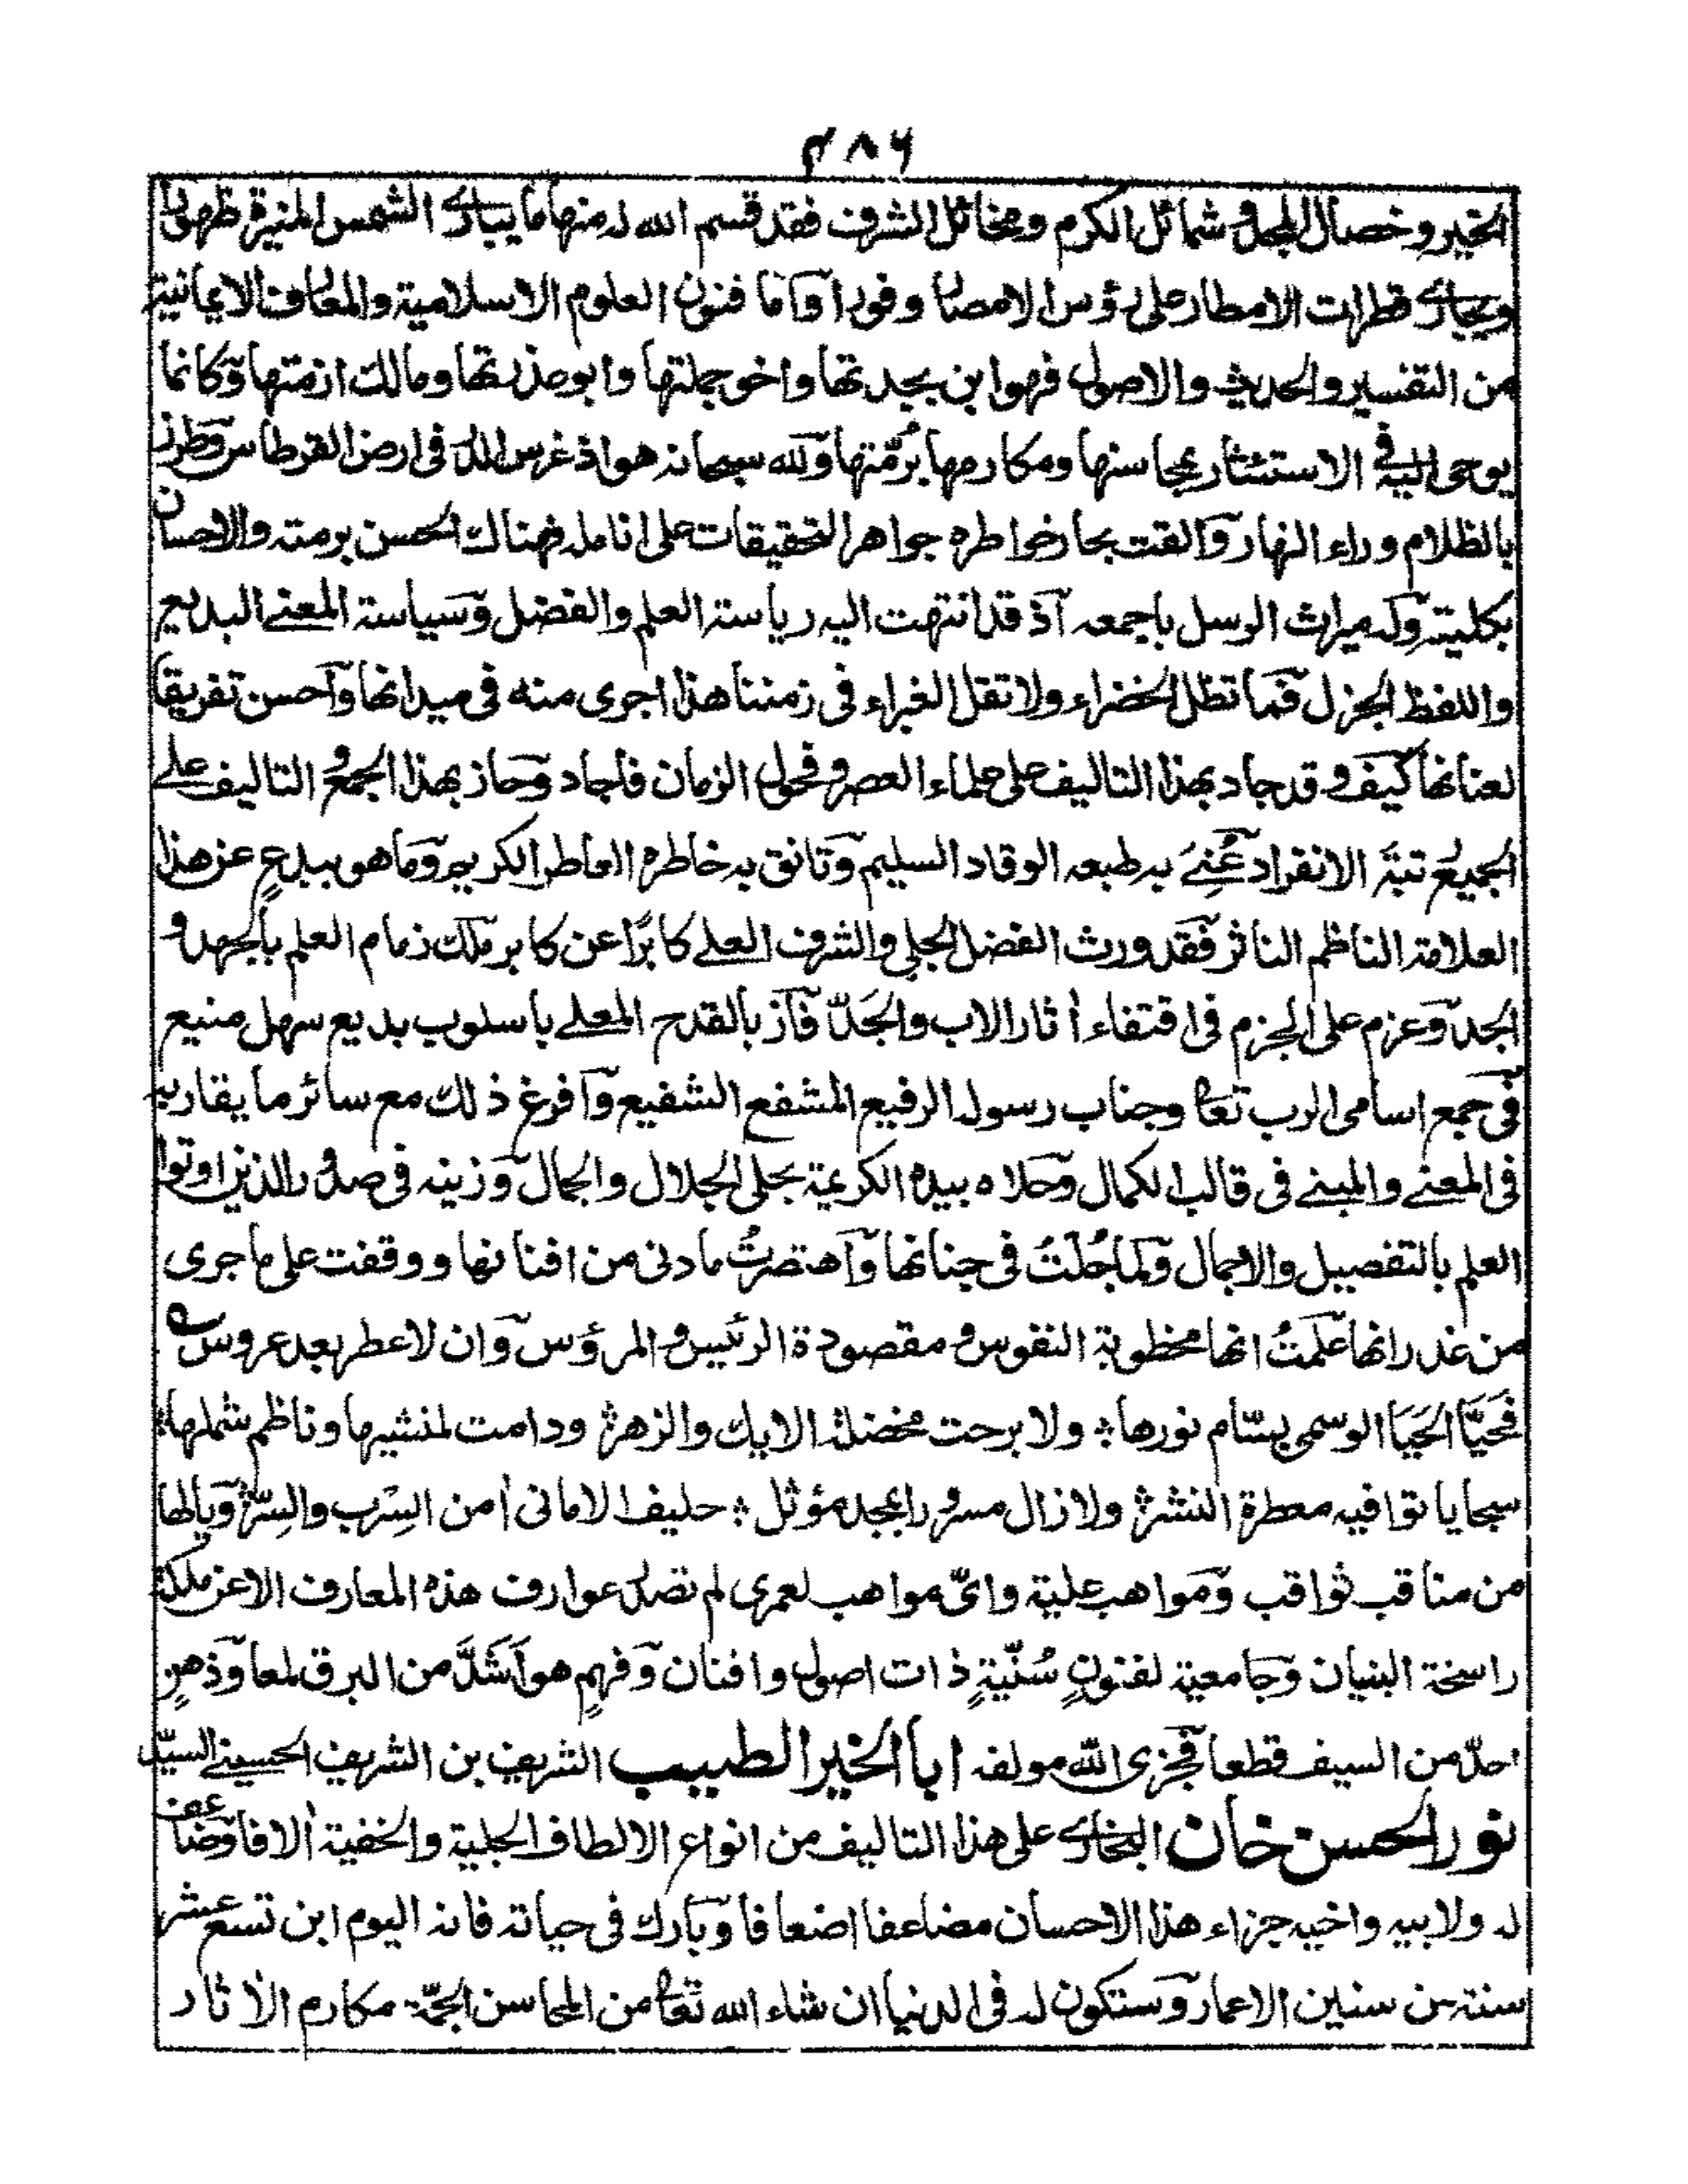 ٣٨٦
الخير وخصال المجد وشمائل الكرم ومخائل الشرف فقد قسم الله له منها ما يبارى الشمس المنيرة ظهورا
ويجارى قطرات الامطار على رؤس الامصار وفورا وآما فنون العلوم الاسلامية والمعارف الايمانية
من التفسير والحديث والاصول فهو ابن بجدتها واخو جملتها وابو عذرتها ومالك ازمتها وكانما
يوحى اليه فى الاستئثار بمحاسنها ومكارمها برُمّتها ولله سبحانه هو اذ غرس الدر فى ارض القرطاس وطرز
بالظلام وراء النهار وآلقت بحار خواطره جواهر التحقيقات على انامله فهناك الحسن برمته والاحسان
بكليته وله ميراث الرسل باجمعه آذ قد انتهت اليه رياسة العلم والفضل وسياسة المعنے البديع
واللفظ الجزل فما تظل الخضراء ولا تقل الغبراء فى زمننا هذا اجرى منه فى ميدانها وآحسن تفريقا
لعنانها كيف وقد جاد بهذا التاليف على علماء العصر وفحول الزمان فاجاد وحاز بهذا الجمع والتاليف على
الجميع رتبَة الانفراد عُنِےَ به طبعه الوقاد السليم وتانق به خاطره العاطر الكريم وما هو ببدعٍ عن هذا
العلامة الناظم الناثر فقد ورث الفضل الجلى والشرف العلے كابرًا عن كابر ملك زمام العلم بالجهد و
الجد وعزم على الجزم فى اقتفاء أثار الاب والجَدّ فآز بالقدح المعلے باسلوب بديع سهل منيع
فى جمع اسامى الرب تعالى وجناب رسوله الرفيع المشفع الشفيع وآفرغ ذلك مع سائر ما يقاربه
فى المعنے والمبنے فى قالب الكمال وحلاه بيده الكريمة بحلى الجلال والجمال وزينه فى صدور الذين اوتوا
العلم بالتفصيل والاجمال ولما جُلتُ فى جنانها وآهتصرتُ ما دنى من افنانها ووقفت على ما جرى
من غدرانها علمتُ انها مخطوبة النفوس ومقصودة الرئيس والمرؤس وان لا عطر بعد عروس ه
فحَيَّا الحَيَا الوسمى بسّام نورها ؛ ولا برحت مخضلة الايك والزهر ؛ ودامت لمنشيها وناظم شملها ؛
سجايا توافيه معطرة النشر ؛ ولا زال مسرورا بمجد مؤثل ؛ حليف الامانى أمن السِرب والسِرّ ؛ ويالها
من مناقب ثواقب ومواهب علية واىّ مواهب لعمرى لم تصدر عوارف هذه المعارف الا عن ملكة
راسخة البنيان وجامعية لفنونٍ سُنّيةٍ ذات اصول وافنان وفهمٍ هو آشدَّ من البرق لمعا وذهنٍ
احدّ من السيف قطعا فجزى الله مولفه ابا الخير الطيب الشريف بن الشريف الحسينے السيّد
نور الحسن خان البخارى على هذا التاليف من انواع الالطاف الجلية والخفية ألافا وضاعف
له ولابيه واخيه جزاء هذا الاحسان مضاعفا اضعافا وبارك فى حياته فانه اليوم ابن تسع عشر
سنة من سنين الاعمار وستكون له فى الدنيا ان شاء الله تعالى من المحاسن الجمّة مكارم الأثار